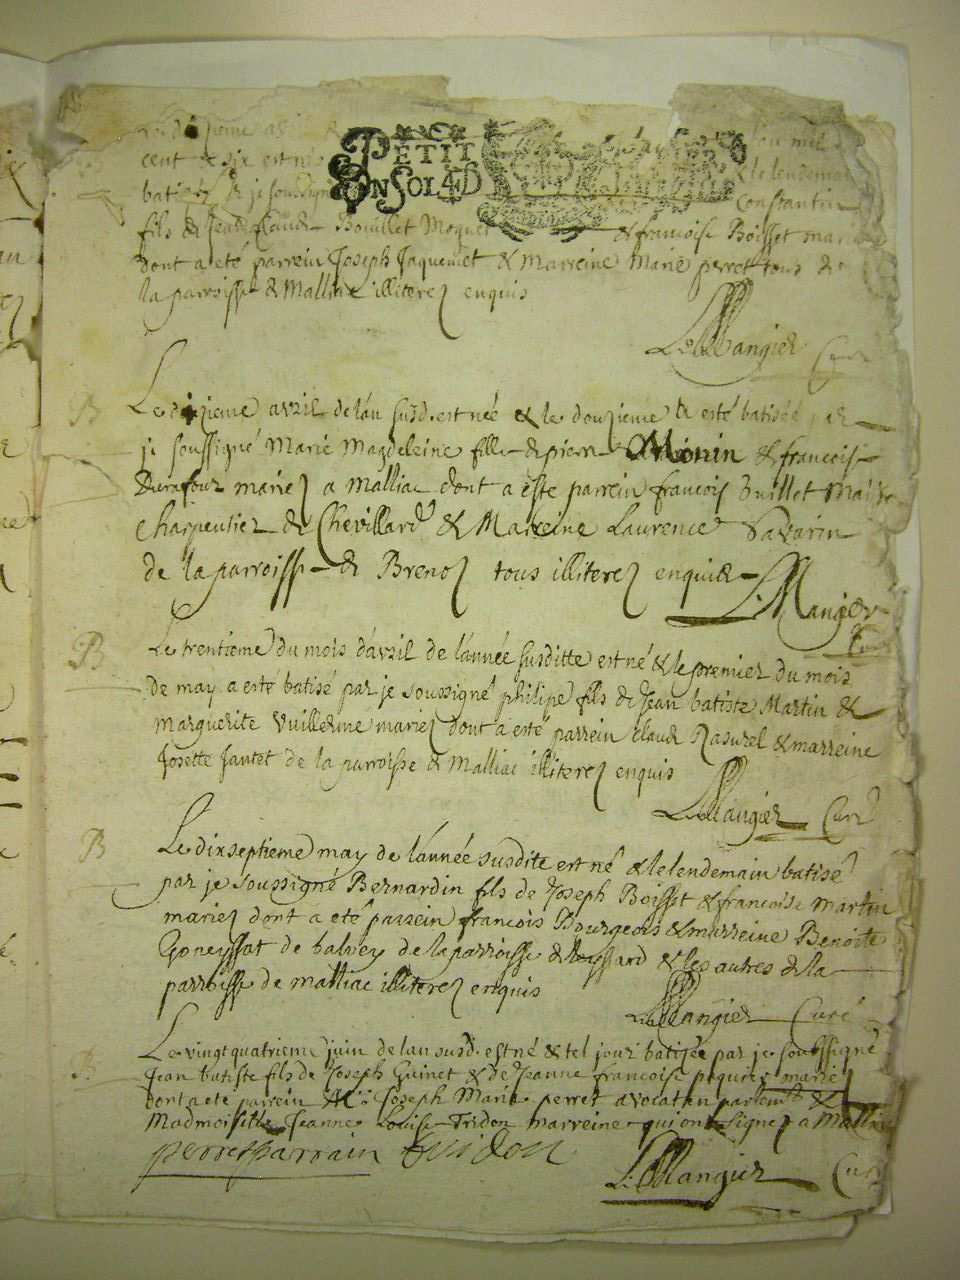 cent & six est né
PETIT
EN SOL 4 D
& le lendemain
batisé par je soussigné
Constantin
fils de Jean Claude Bouillet Moquet & francoise Boisset mariez
dont a été parrein Joseph Jaquemet & Marreine Marie perret tous de
la parroisse de Malliac illiterez enquis
L: Mangier Curé
B
Le dixieme avril de lan susd. est né & le douzieme a esté batisée par
je soussigné Marie Magdeleine fille de pierre Monin & francoise
Durafour mariez a Malliac dont a este parrein francois Vuillet Maitre
Charpentier de Chevillard & Marreine Laurence Savarin
de la parroisse de Brenoz tous illiterez enquis
L: Mangier
Curé
B
Le trentieme du mois davril de lannée susditte est né & le premier du mois
de may a esté batisé par je soussigné philipe fils de Jean batiste Martin &
Marguerite Vuillerme mariez dont a esté parrein claude Rasurel & marreine
Josette Jantet de la parroisse de Malliac illiterez enquis
L: Mangier Curé
B
Le dixseptieme may de lannée susdite est né & le lendemain batisé
par je soussigné Bernardin fils de Joseph Boisset & francoise Martin
mariez dont a eté parrein francois Bourgeois & marreine Benoite
Goneyssat de balvey de la parroisse de & les autres de la
parroisse de malliac illiterez enquis
L: Mangier Curé
B
Le vingt quatrieme juin de lan susd. est né & tel jour batisée par je soussigné
Jean batiste fils de Joseph Guinet & de Jeanne francoise mariez
dont a eté parrein Mr: Joseph Marie perret avocat au parlemt &
Madmoiselle Jeanne Louise Tridon marreine qui ont signez a Malliac
perret parrain tridon
L: Mangier Curé